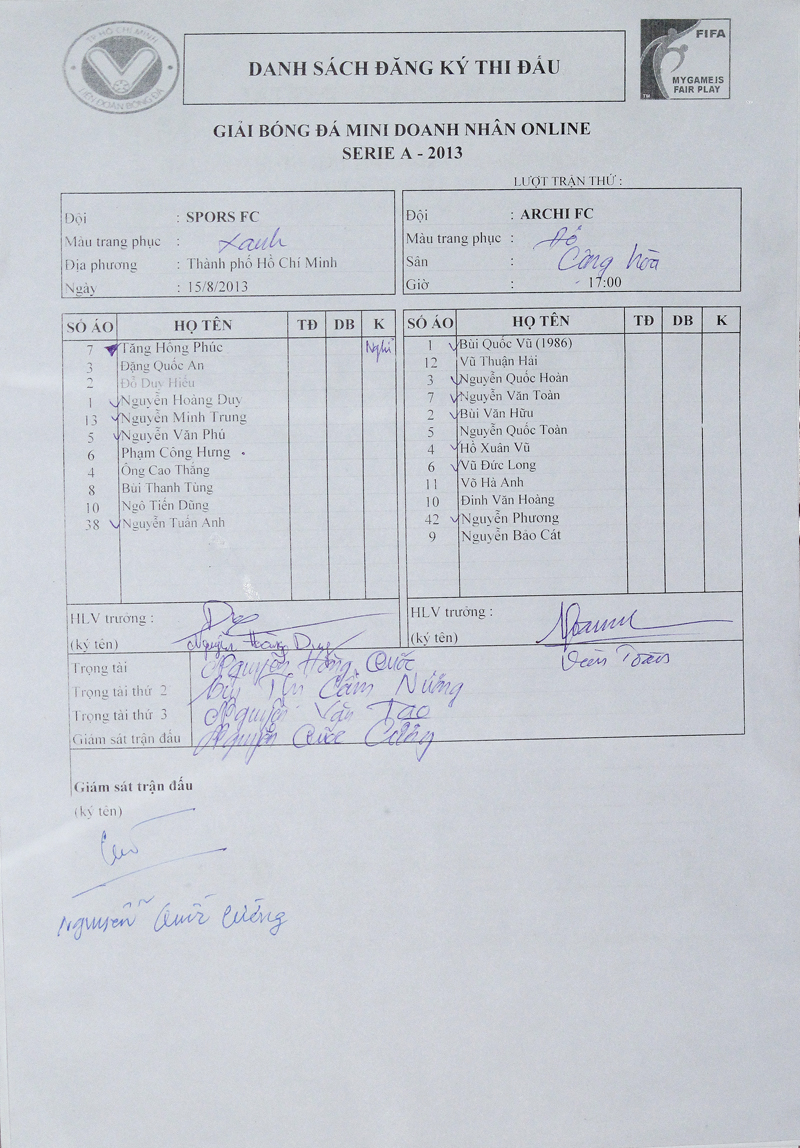 TP HỒ CHÍ MINH
LIÊN ĐOÀN BÓNG ĐÁ
DANH SÁCH ĐĂNG KÝ THI ĐẤU
FIFA
MY GAME IS
FAIR PLAY
TM
GIẢI BÓNG ĐÁ MINI DOANH NHÂN ONLINE
SERIE A - 2013
LƯỢT TRẬN THỨ :
Đội : SPORS FC
Màu trang phục : Xanh
Địa phương : Thành phố Hồ Chí Minh
Ngày : 15/8/2013
Đội : ARCHI FC
Màu trang phục : Đỏ
Sân : Cộng hòa
Giờ : 17:00
SỐ ÁO HỌ TÊN TĐ DB K
7 Tăng Hồng Phúc Nghỉ
3 Đặng Quốc An
2 Đỗ Duy Hiếu
1 Nguyễn Hoàng Duy
13 Nguyễn Minh Trung
5 Nguyễn Văn Phú
6 Phạm Công Hưng
4 Ông Cao Thắng
8 Bùi Thanh Tùng
10 Ngô Tiến Dũng
38 Nguyễn Tuấn Anh
HLV trưởng :
(ký tên)
Nguyễn Hoàng Duy
SỐ ÁO HỌ TÊN TĐ DB K
1 Bùi Quốc Vũ (1986)
12 Vũ Thuận Hải
3 Nguyễn Quốc Hoàn
7 Nguyễn Văn Toàn
2 Bùi Văn Hữu
5 Nguyễn Quốc Toàn
4 Hồ Xuân Vũ
6 Vũ Đức Long
11 Võ Hà Anh
10 Đinh Văn Hoàng
42 Nguyễn Phương
9 Nguyễn Bảo Cát
HLV trưởng :
(ký tên)
Văn Toàn
Trọng tài Nguyễn Hồng Quốc
Trọng tài thứ 2 Bùi Thị Cẩm Nường
Trọng tài thứ 3 Nguyễn Văn Tạo
Giám sát trận đấu Nguyễn Quốc Cường
Giám sát trận đấu
(ký tên)
Nguyễn Quốc Cường